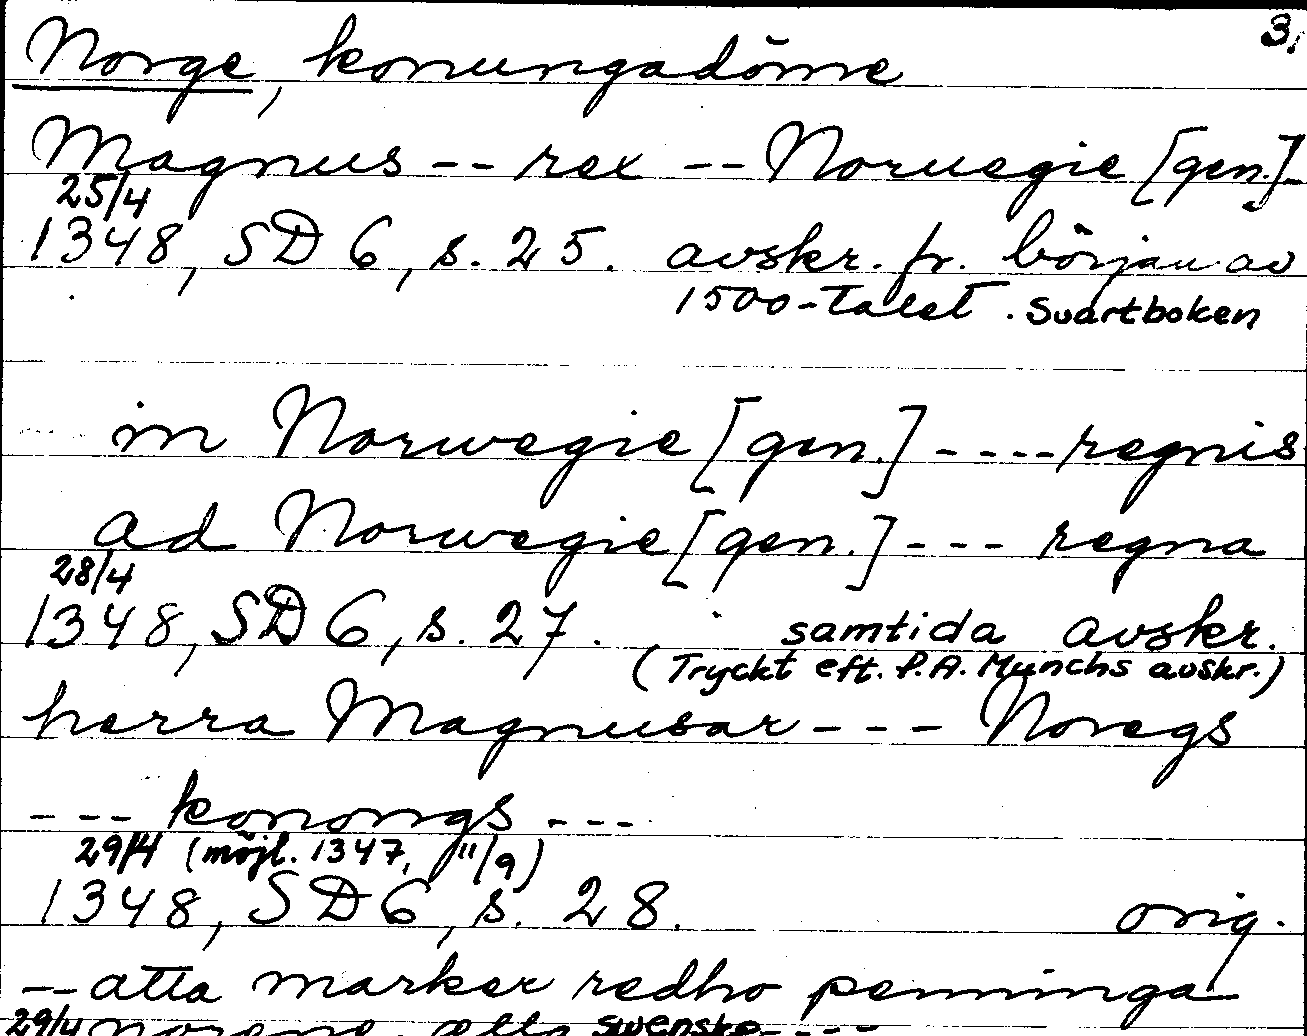 3.
Norge, konungadöme
Magnus -- rex -- Noruegie [gen.]-
25/4
1348, SD 6, s. 25. avskr. fr. början av
1500-talet. Svartboken
in Norwegie [gen.] ---- regnis
ad Norwegie [gen.] --- regna
28/4
1348, SD 6, s. 27. samtida avskr.
(Tryckt eft. P.A. Munchs avskr.)
herra Magnusar --- Noregs
--- konongs ---
29/4 (möjl. 1347, 11/9)
1348, SD 6, s. 28. orig.
-- atta marker redho penninga
29/4 swenske ----